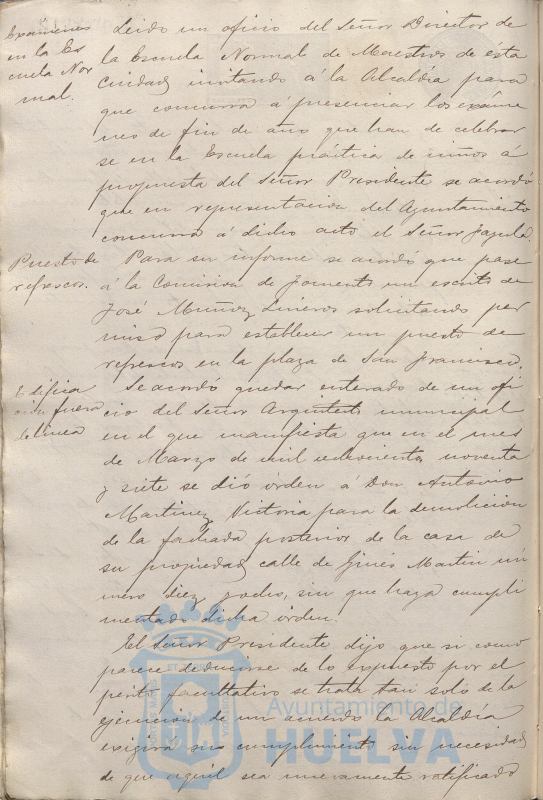 Exámenes
en la Es
cuela Nor
mal.
Leido un oficio del Señor Director de
la Escuela Normal de Maestros de ésta
Ciudad invitando á la Alcaldía para
que concurra á presenciar los exáme
nes de fin de año que han de celebrar
se en la Escuela práctica de niños á
propuesta del Señor Presidente se acordó
que en representacion del Ayuntamiento
concurra á dicho acto el Señor
Puesto de
refrescos.
Para su informe se acordó que pase
á la Comision de Fomento un escrito de
José Muñoz Lineros solicitando per
miso para establecer un puesto de
refrescos en la plaza de San Francisco.
Edifica
cion fuera
de linea
Se acordó quedar enterado de un ofi
cio del Señor Arquitecto municipal
en el que manifiesta que en el mes
de Marzo de mil ochocientos noventa
y siete se dió órden á Don Antonio
Martinez Victoria para la demolicion
de la fachada posterior de la casa de
su propiedad calle de Ginés Martin nú
mero diez y ocho, sin que haya cumpli
mentado dicha órden.
El Señor Presidente dijo que si como
parece deducirse de lo expuesto por el
perito facultativo se trata tan solo de la
ejecucion de un acuerdo la Alcaldía
exigirá su cumplimiento sin necesidad
de que aquel sea nuevamente ratificado
Ayuntamiento de
HUELVA